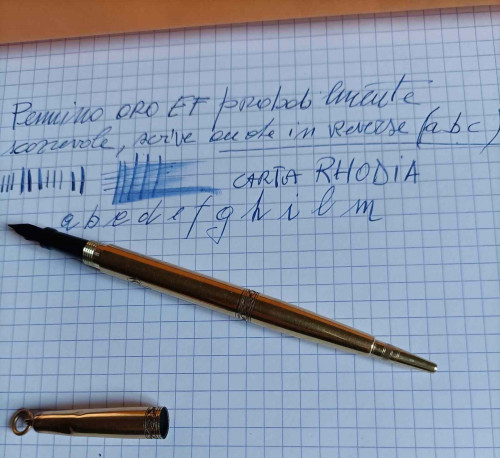 Pennino ORO EF probabilmente
scorrevole, scrive anche in reverse (a.b.c)
CARTA RHODIA
a b c d e f g h i l m